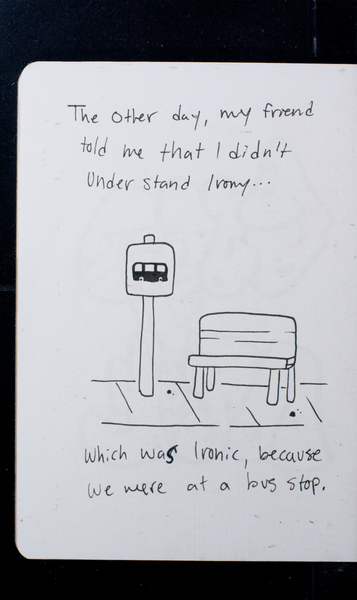 The other day, my friend
told me that I didn't
Understand Irony...
Which was Ironic, because
We were at a bus stop.